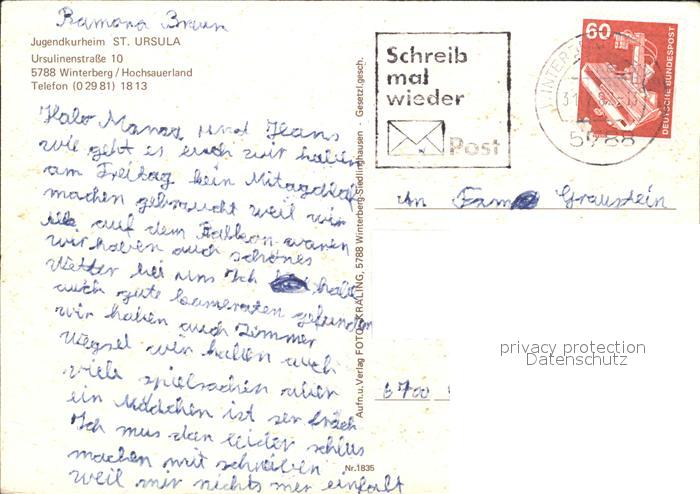 Ramona Braun
Jugendkurheim ST. URSULA
Ursulinenstraße 10
5788 Winterberg / Hochsauerland
Telefon (0 29 81) 18 13
Halo Mama und Hans
wie geht es euch wir haben
am Freitag kein Mitagschlaf
machen gebraucht weil wir
auf dem Balkon waren
wir haben auch schönes
Wetter bei uns Ich habe
auch gute kameraten gefunden
wir haben auch Zimmer
Wegsel wir haben auch
viele spielsachen aber
ein Mädchen ist ser frech
Ich mus dan leider schlus
machen mit schreiben
weil mir nichts mer einfält
Aufn.u.Verlag FOTO-KRALING, 5788 Winterberg-Siedlinghausen Gesetzl.gesch.
Nr.1835
Schreib
mal
wieder
Post
60
DEUTSCHE BUNDESPOST
5788
An Fam Graustein
privacy protection
Datenschutz
6700